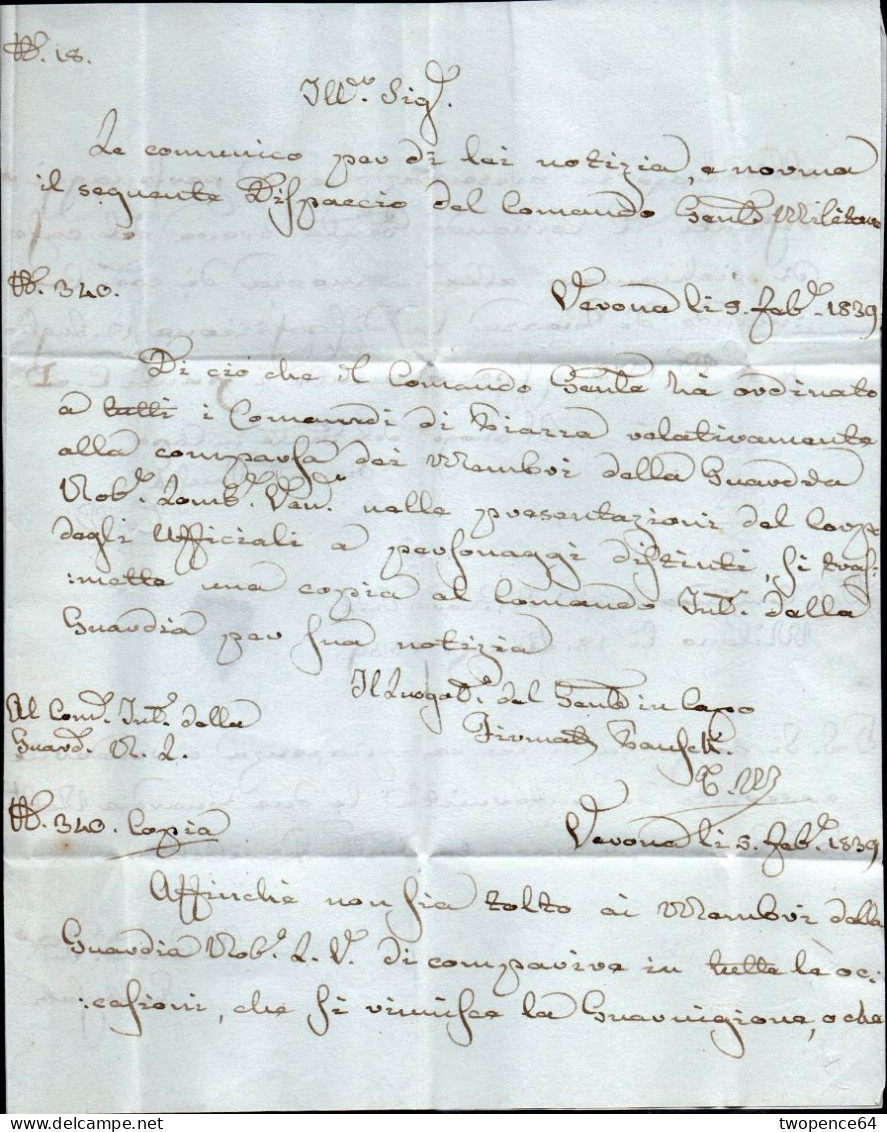 N.° 18.
Ill.mo Sig.r
Le comunico per di lei notizia, e norma
il seguente Dispaccio del Comando Gen.le Militare
N.° 340.
Verona li 5. Feb.o 1839
Di ciò che il Comando Gen.le hà ordinato
a tutti i Comandi di Piazza relativamente
alla comparsa dei Membri della Guardia
Nob.e Lomb.o Ven.a nelle presentazioni del Corpo
degli Ufficiali a personaggi distinti, si tras=
=mette una copia al Comando Int.o della
Guardia per sua notizia
Il Luogot.e del Gen.le in Capo
Firmato
Al Com.o Int.o della
Guard.a N. L.
N.° 340. Copia
Verona li 5. Feb.o 1839
Affinchè non sia tolto ai Membri della
Guardia Nob.e L. V. di comparire in tutte le oc=
=casioni, che si riunisce la Guarnigione, o che
twopence64